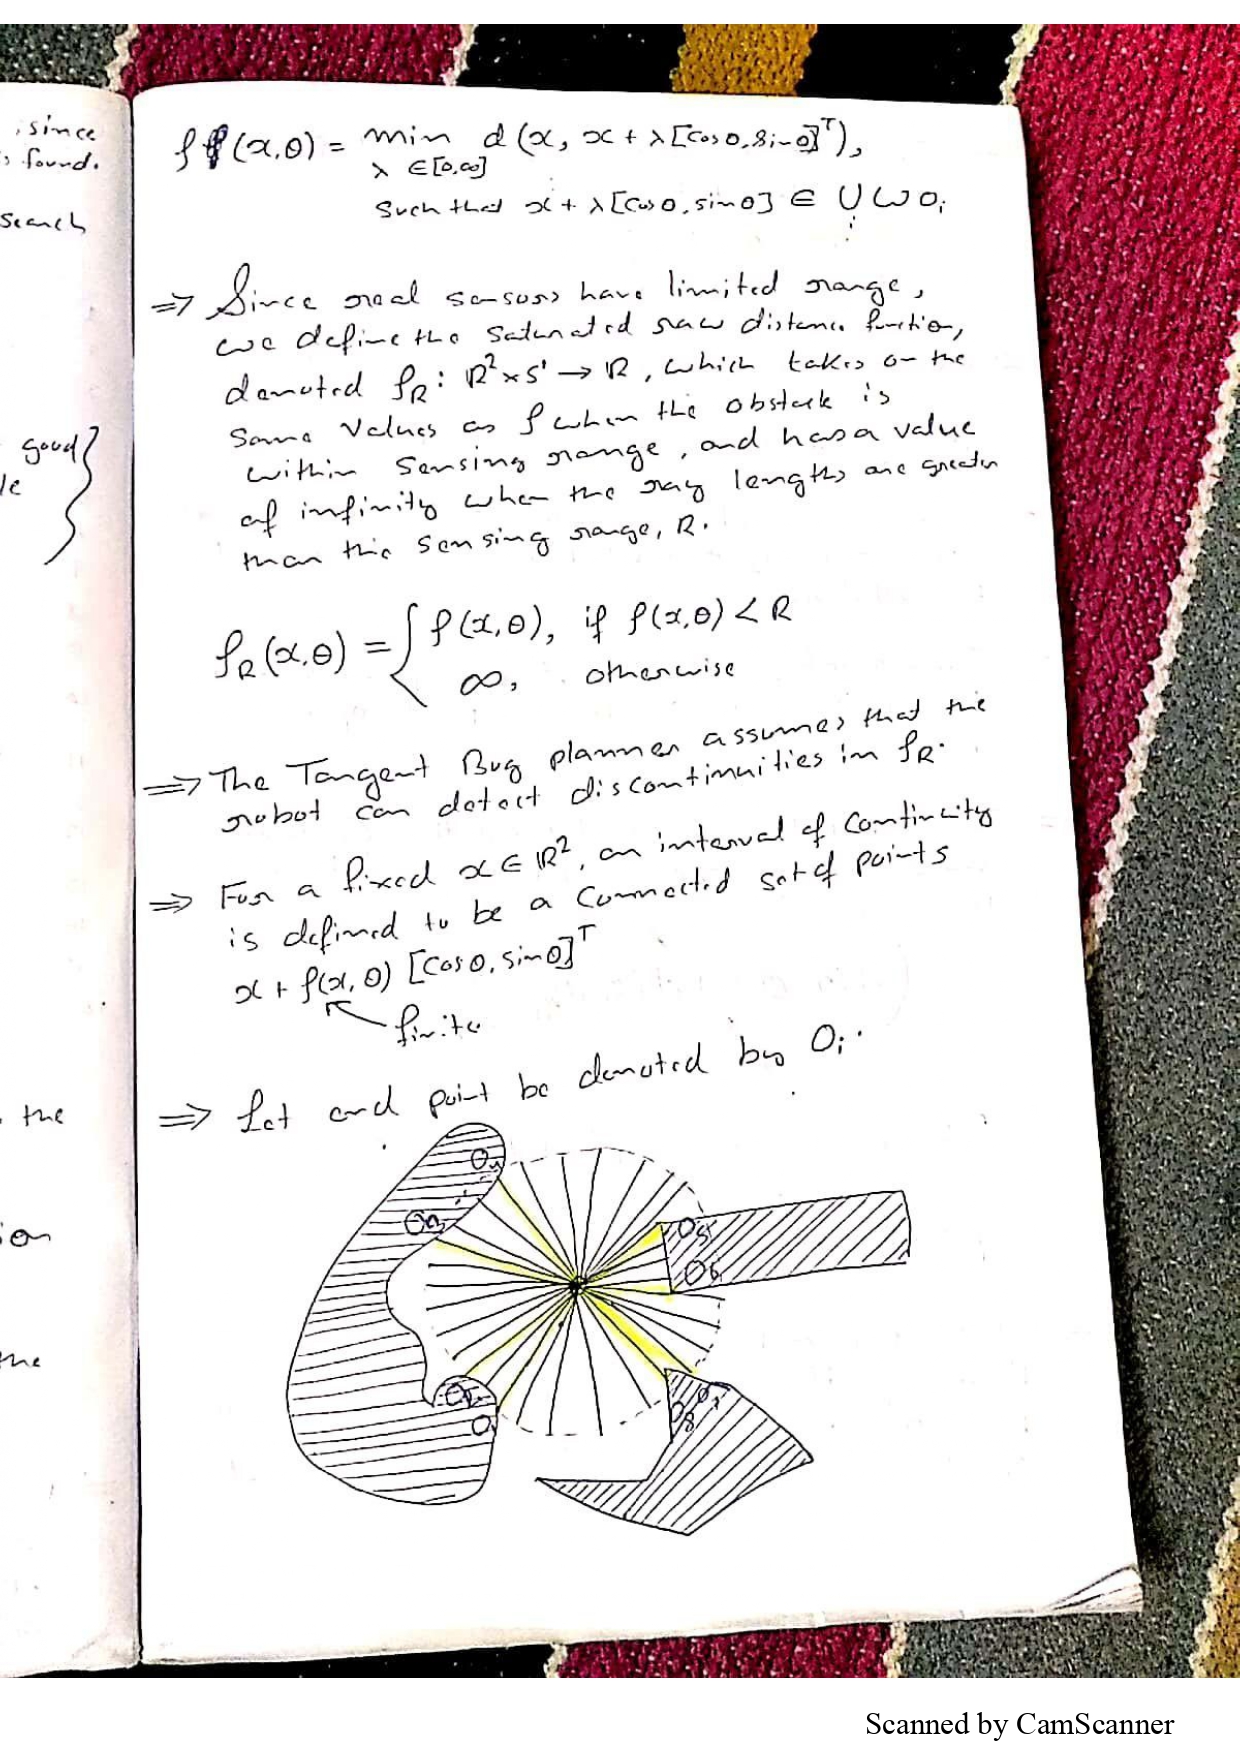 , since
s found.
search
good
le
the
ion
the
ρ(x,θ) = min d(x, x + λ[cosθ, sinθ]ᵀ),
λ ∈ [0,∞]
Such that x + λ[cosθ, sinθ] ∈ ⋃ WO_i
i
⇒ Since real sensors have limited range,
we define the saturated raw distance function,
denoted ρ_R : ℝ² × S¹ → ℝ, which takes on the
same values as ρ when the obstacle is
within sensing range, and has a value
of infinity when the ray lengths are greater
than the sensing range, R.
ρ_R(x,θ) = { ρ(x,θ), if ρ(x,θ) < R
∞, otherwise
⇒ The Tangent Bug planner assumes that the
robot can detect discontinuities in ρ_R.
⇒ For a fixed x ∈ ℝ², an interval of continuity
is defined to be a connected set of points
x + ρ(x,θ) [cosθ, sinθ]ᵀ
finite
⇒ Let end point be denoted by O_i.
O₃
O₅
O₆
O₂
O₇
O₈
Scanned by CamScanner